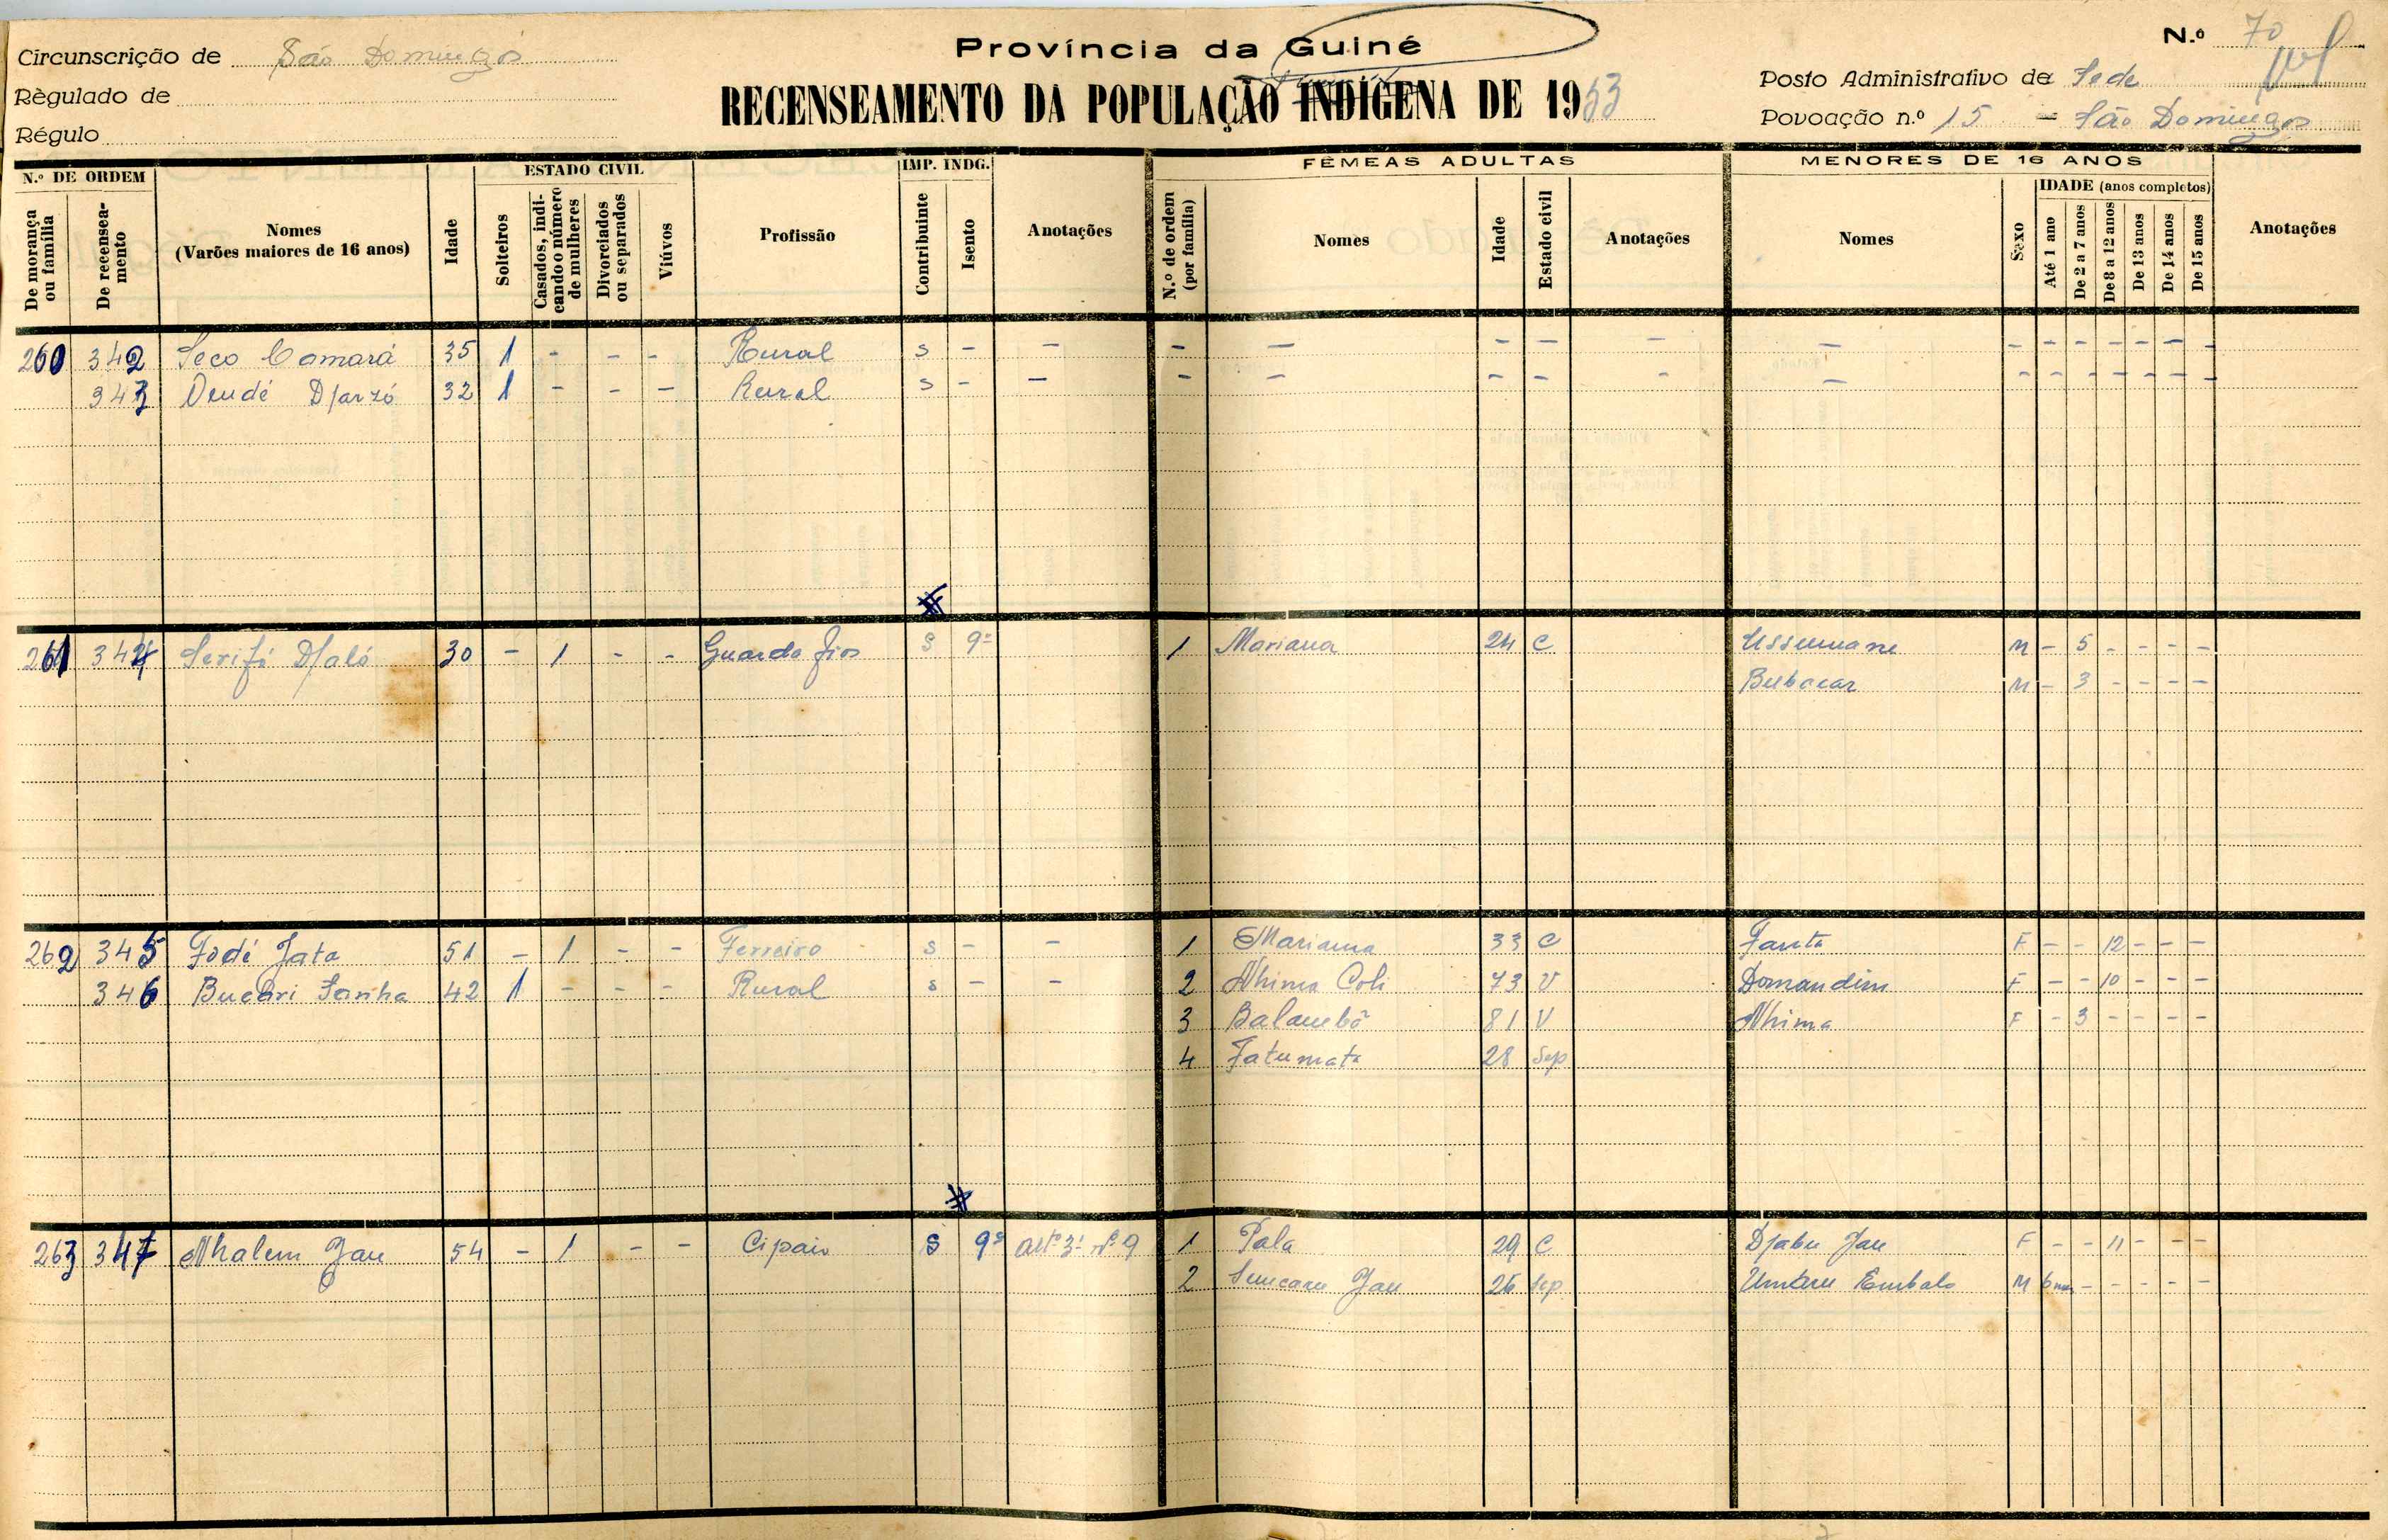 Província da Guiné
N.º 70
Circunscrição de São Domingos
RECENSEAMENTO DA POPULAÇÃO INDÍGENA DE 1953
Posto Administrativo de Sede
Règulado de
Povoação n.º 15 - São Domingos
Régulo
N.º DE ORDEM
De morança ou família
De recenseamento
Nomes
(Varões maiores de 16 anos)
Idade
ESTADO CIVIL
Solteiros
Casados, indicando o número de mulheres
Divorciados ou separados
Viúvos
Profissão
IMP. INDG.
Contribuinte
Isento
Anotações
FÊMEAS ADULTAS
N.º de ordem (por família)
Nomes
Idade
Estado civil
Anotações
MENORES DE 16 ANOS
Nomes
Sexo
IDADE (anos completos)
Até 1 ano
De 2 a 7 anos
De 8 a 12 anos
De 13 anos
De 14 anos
De 15 anos
Anotações
260 342 Seco Camará 35 1 - - - Rural s - - - - - - - - - - - - - - -
343 Djarzó 32 1 - - - Rural s - - - - - - - - - - - - - - -
261 344 Serifo Djaló 30 - 1 - - Guarda fios S 9º 1 Mariana 24 C Ussumane M - 5 - - - -
Bubacar M - 3 - - - -
262 345 Fodé Jata 51 - 1 - - Ferreiro s - - 1 Mariama 33 C Fanta F - - 12 - - -
346 Bucari Sanha 42 1 - - - Rural s - - 2 Nhima Coli 73 V Domandim F - - 10 - - -
3 Balambô 81 V Nhima F - 3 - - - -
4 Fatumata 28 Sep
263 347 Nhalem Jau 54 - 1 - - Cipaio S 9º artº 3º nº 9 1 Pala 29 C Djabu Jau F - - 11 - - -
2 Suncaru Jau 26 Sep Umaru Embalo M 6 mes - - - - -